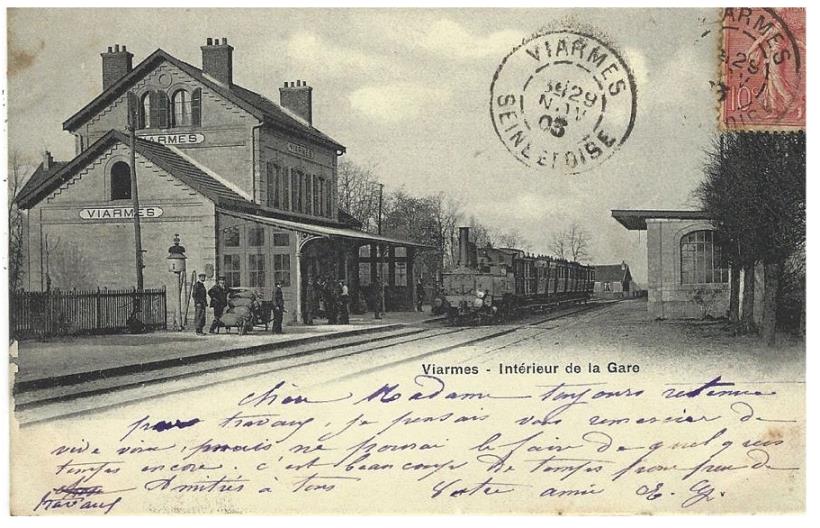 VIARMES
VIARMES
VIARMES
VIARMES
29
NOV
05
SEINE ET OISE
VIARMES
29
10c
Viarmes - Intérieur de la Gare
chère Madame toujours retenue
pour travaux, je pensais vous remercier de
vive voix, mais ne pourai le faire de quelques
temps encore, c'est beaucoup de temps pour peu de
travaux Amitiés à tous Votre amie E. G.